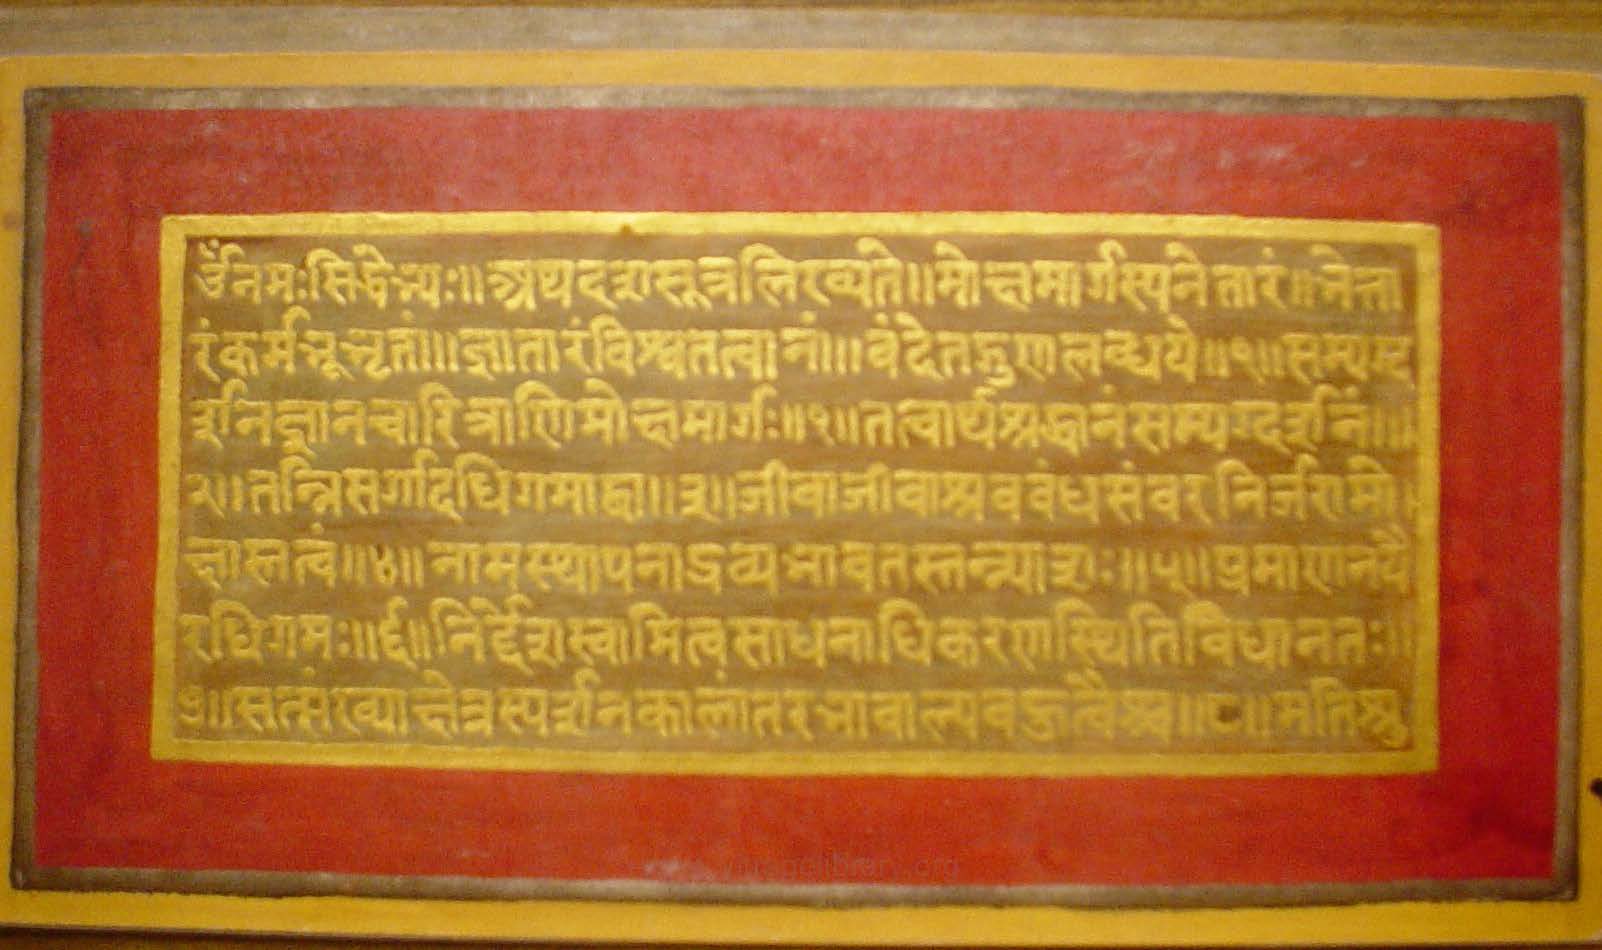 ॐनमःसिद्धेभ्यः॥अथदशसूत्रलिख्यते॥मोक्षमार्गस्यनेतारं॥भेत्ता
रंकर्मभूभृतां॥ज्ञातारंविश्वतत्वानां॥वंदेतद्गुणलब्धये॥१॥सम्यग्द
र्शनज्ञानचारित्राणिमोक्षमार्गः॥१॥तत्वार्थश्रद्धानंसम्यग्दर्शनं॥
२॥तन्निसर्गादधिगमाद्वा॥३॥जीवाजीवाश्रवबंधसंवरनिर्जरामो
क्षास्तत्वं॥४॥नामस्थापनाद्रव्यभावतस्तन्न्यासः॥५॥प्रमाणनयै
रधिगमः॥६॥निर्देशस्वामित्वसाधनाधिकरणस्थितिविधानतः॥
७॥सत्संख्याक्षेत्रस्पर्शनकालांतरभावाल्पबहुत्वैश्च॥८॥मतिश्रु